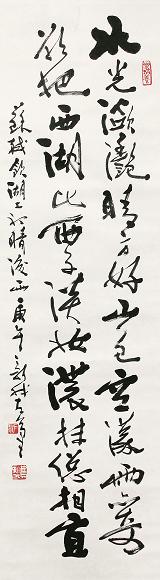 水光瀲灩晴方好山色空濛雨亦奇
欲把西湖比西子淡妝濃抹總相宜
蘇軾飲湖上初晴後雨庚午